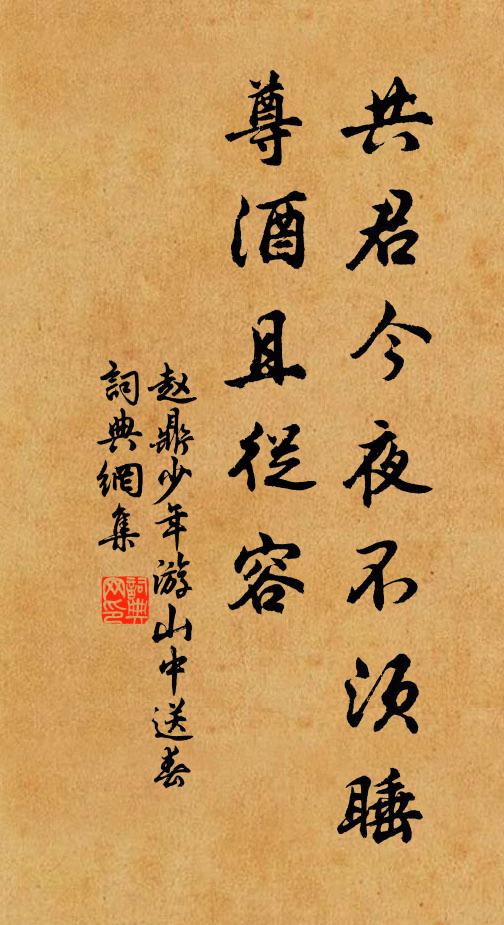 共君今夜不须睡
尊酒且從容
赵鼎少年游山中送春
詞典網集
詞典网印